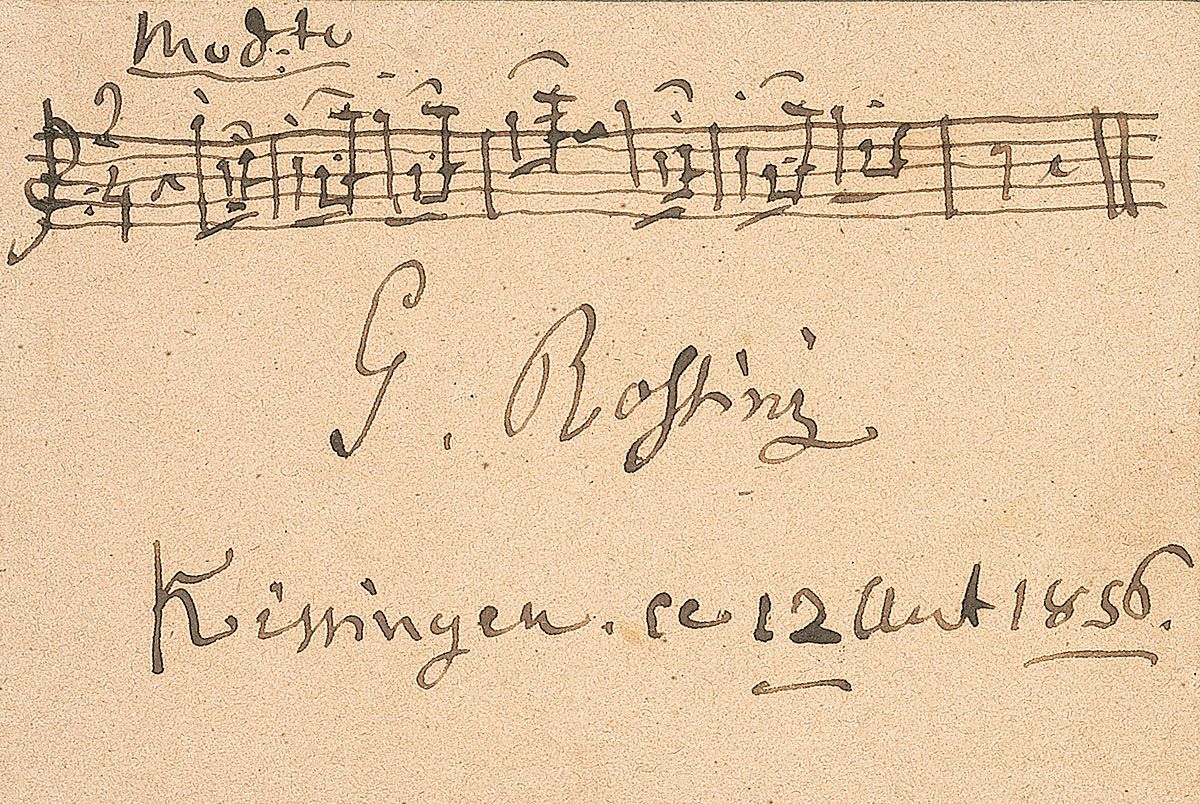 Mod:to
2 4
G. Rossini
Kissingen. ce 12 Aut 1856.